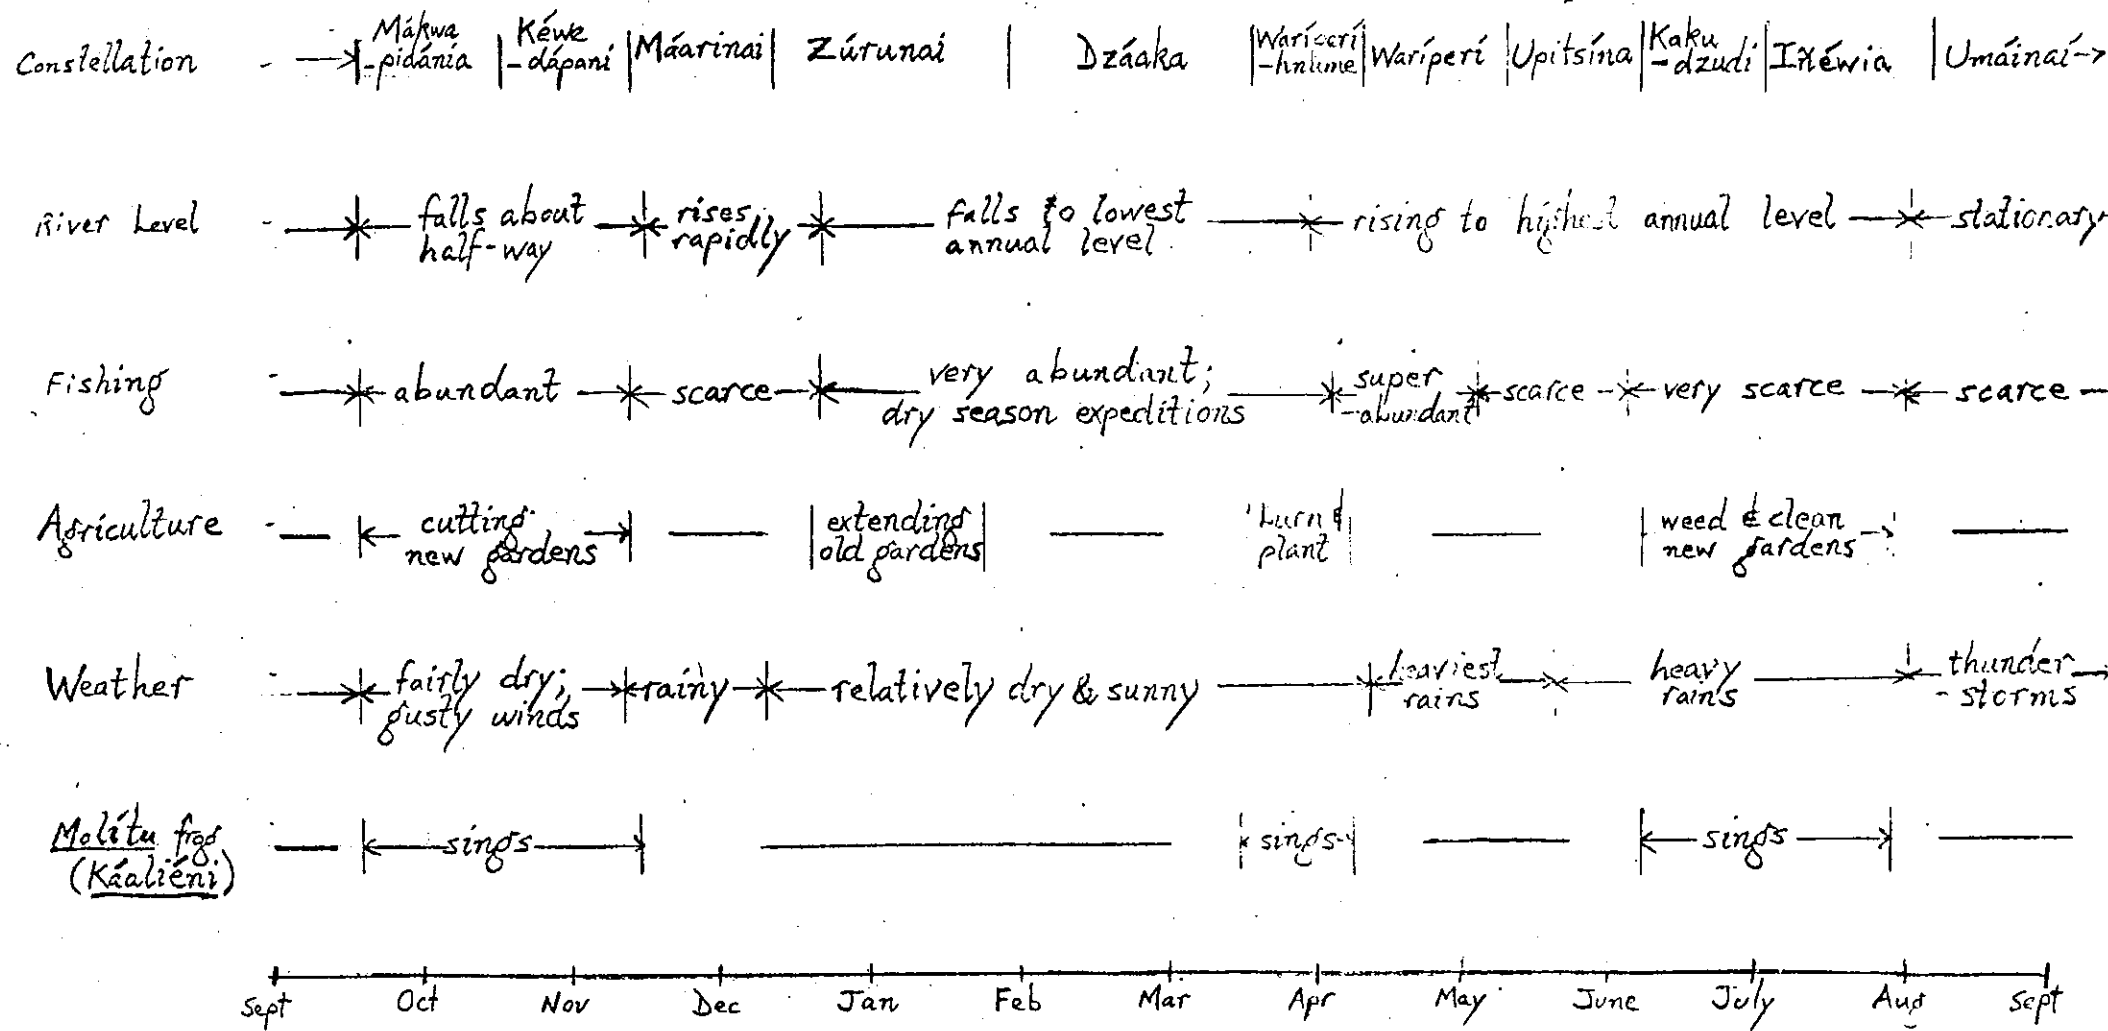 Constellation
Mákwa
-pidánia
Kéwe
-dápani
Máarinai
Zúrunai
Dzáaka
-hnume
Waríperí
Upitsína
Kaku
-dzudi
Umáinaí
River Level
falls about
half-way
rises
rapidly
falls to lowest
annual level
rising to highest annual level
stationary
Fishing
abundant
scarce
very abundant;
dry season expeditions
super
-abundant
scarce
very scarce
scarce
Agriculture
cutting
new gardens
extending
old gardens
burn &
plant
weed & clean
new gardens
Weather
fairly dry;
gusty winds
rainy
relatively dry & sunny
heaviest
rains
heavy
rains
thunder
-storms
Molítu frog
(Káaliéni)
sings
sings
sings
Sept
Oct
Nov
Dec
Jan
Feb
Mar
Apr
May
June
July
Aug
Sept